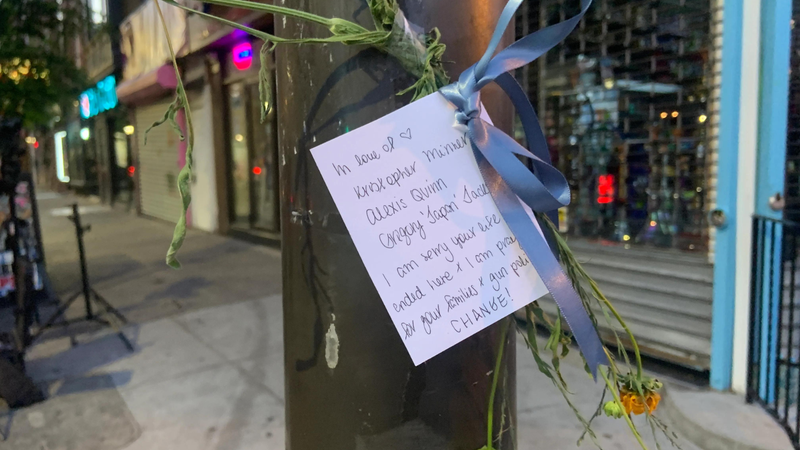 In love of ♡
Kristopher Minners
Alexis Quinn
Gregory Japan Jack
I am sorry your life
ended here & I am pray
for your families & gun pol
CHANGE!